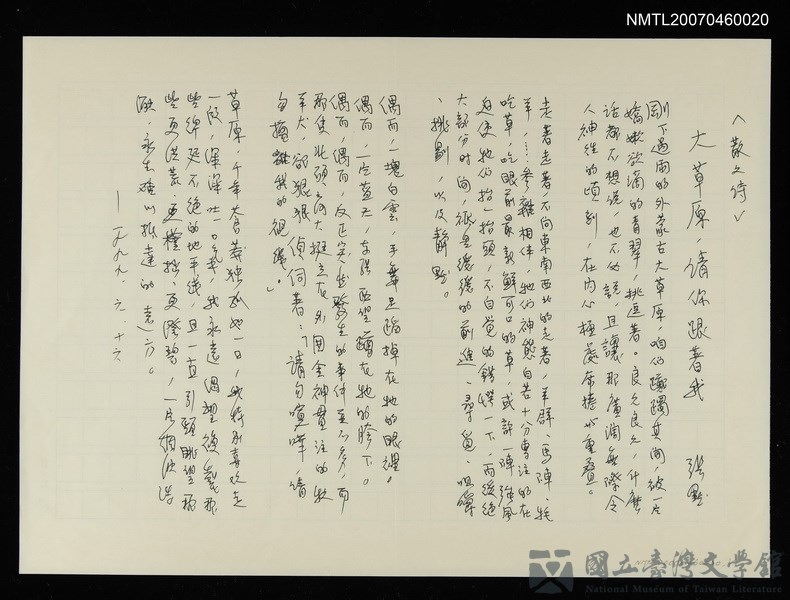 NMTL20070460020
〈散文詩〉
大草原,請你跟著我 張默
剛下過雨的外蒙古大草原,咱們躑躅其間,被一片
嬌嫩欲滴的青翠,挑逗著。良久良久,什麼
話都不想說,也不必說,且讓那廣闊無際令
人神往的頃刻,在內心極處奔捲心重疊。
走著走著,不向東南西北的走著,羊群、馬陣、牦
羊,……參雜相伴,牠們神態自若十分專注的在
吃草,吃眼前最新鮮可口的草,或許一陣強風
迫使牠們抬一抬頭,不自覺的錯愕一下,而後絕
大部分時間,祇是緩緩的前進、尋覓、咀嚼
、挑剔,以及靜默。
偶而,一塊白雲,手舞足蹈掉在牠的眼裡。
偶而,一片藍天,左張右望蹲在牠的胯下。
偶而,偶而,反正突然發生的事件並不多,而
那隻北頭之大挺立在外圍全神貫注的牧
羊犬,卻狠狠偵伺著:「請勿喧嘩,請
勿擋離我的視線。」
草原,千年太息莽獨孤如一日,我特別喜歡走
一段,深深吐一口氣,我永遠偶望後義那
些綿延不絕的地平線,且一直引頸眺望那
些更洪荒、更樸拙、更澄碧,一片相次浩
瀚,永生難以抵達的遠方。
—一九九九.六.十六
國立臺灣文學館
National Museum of Taiwan Literature